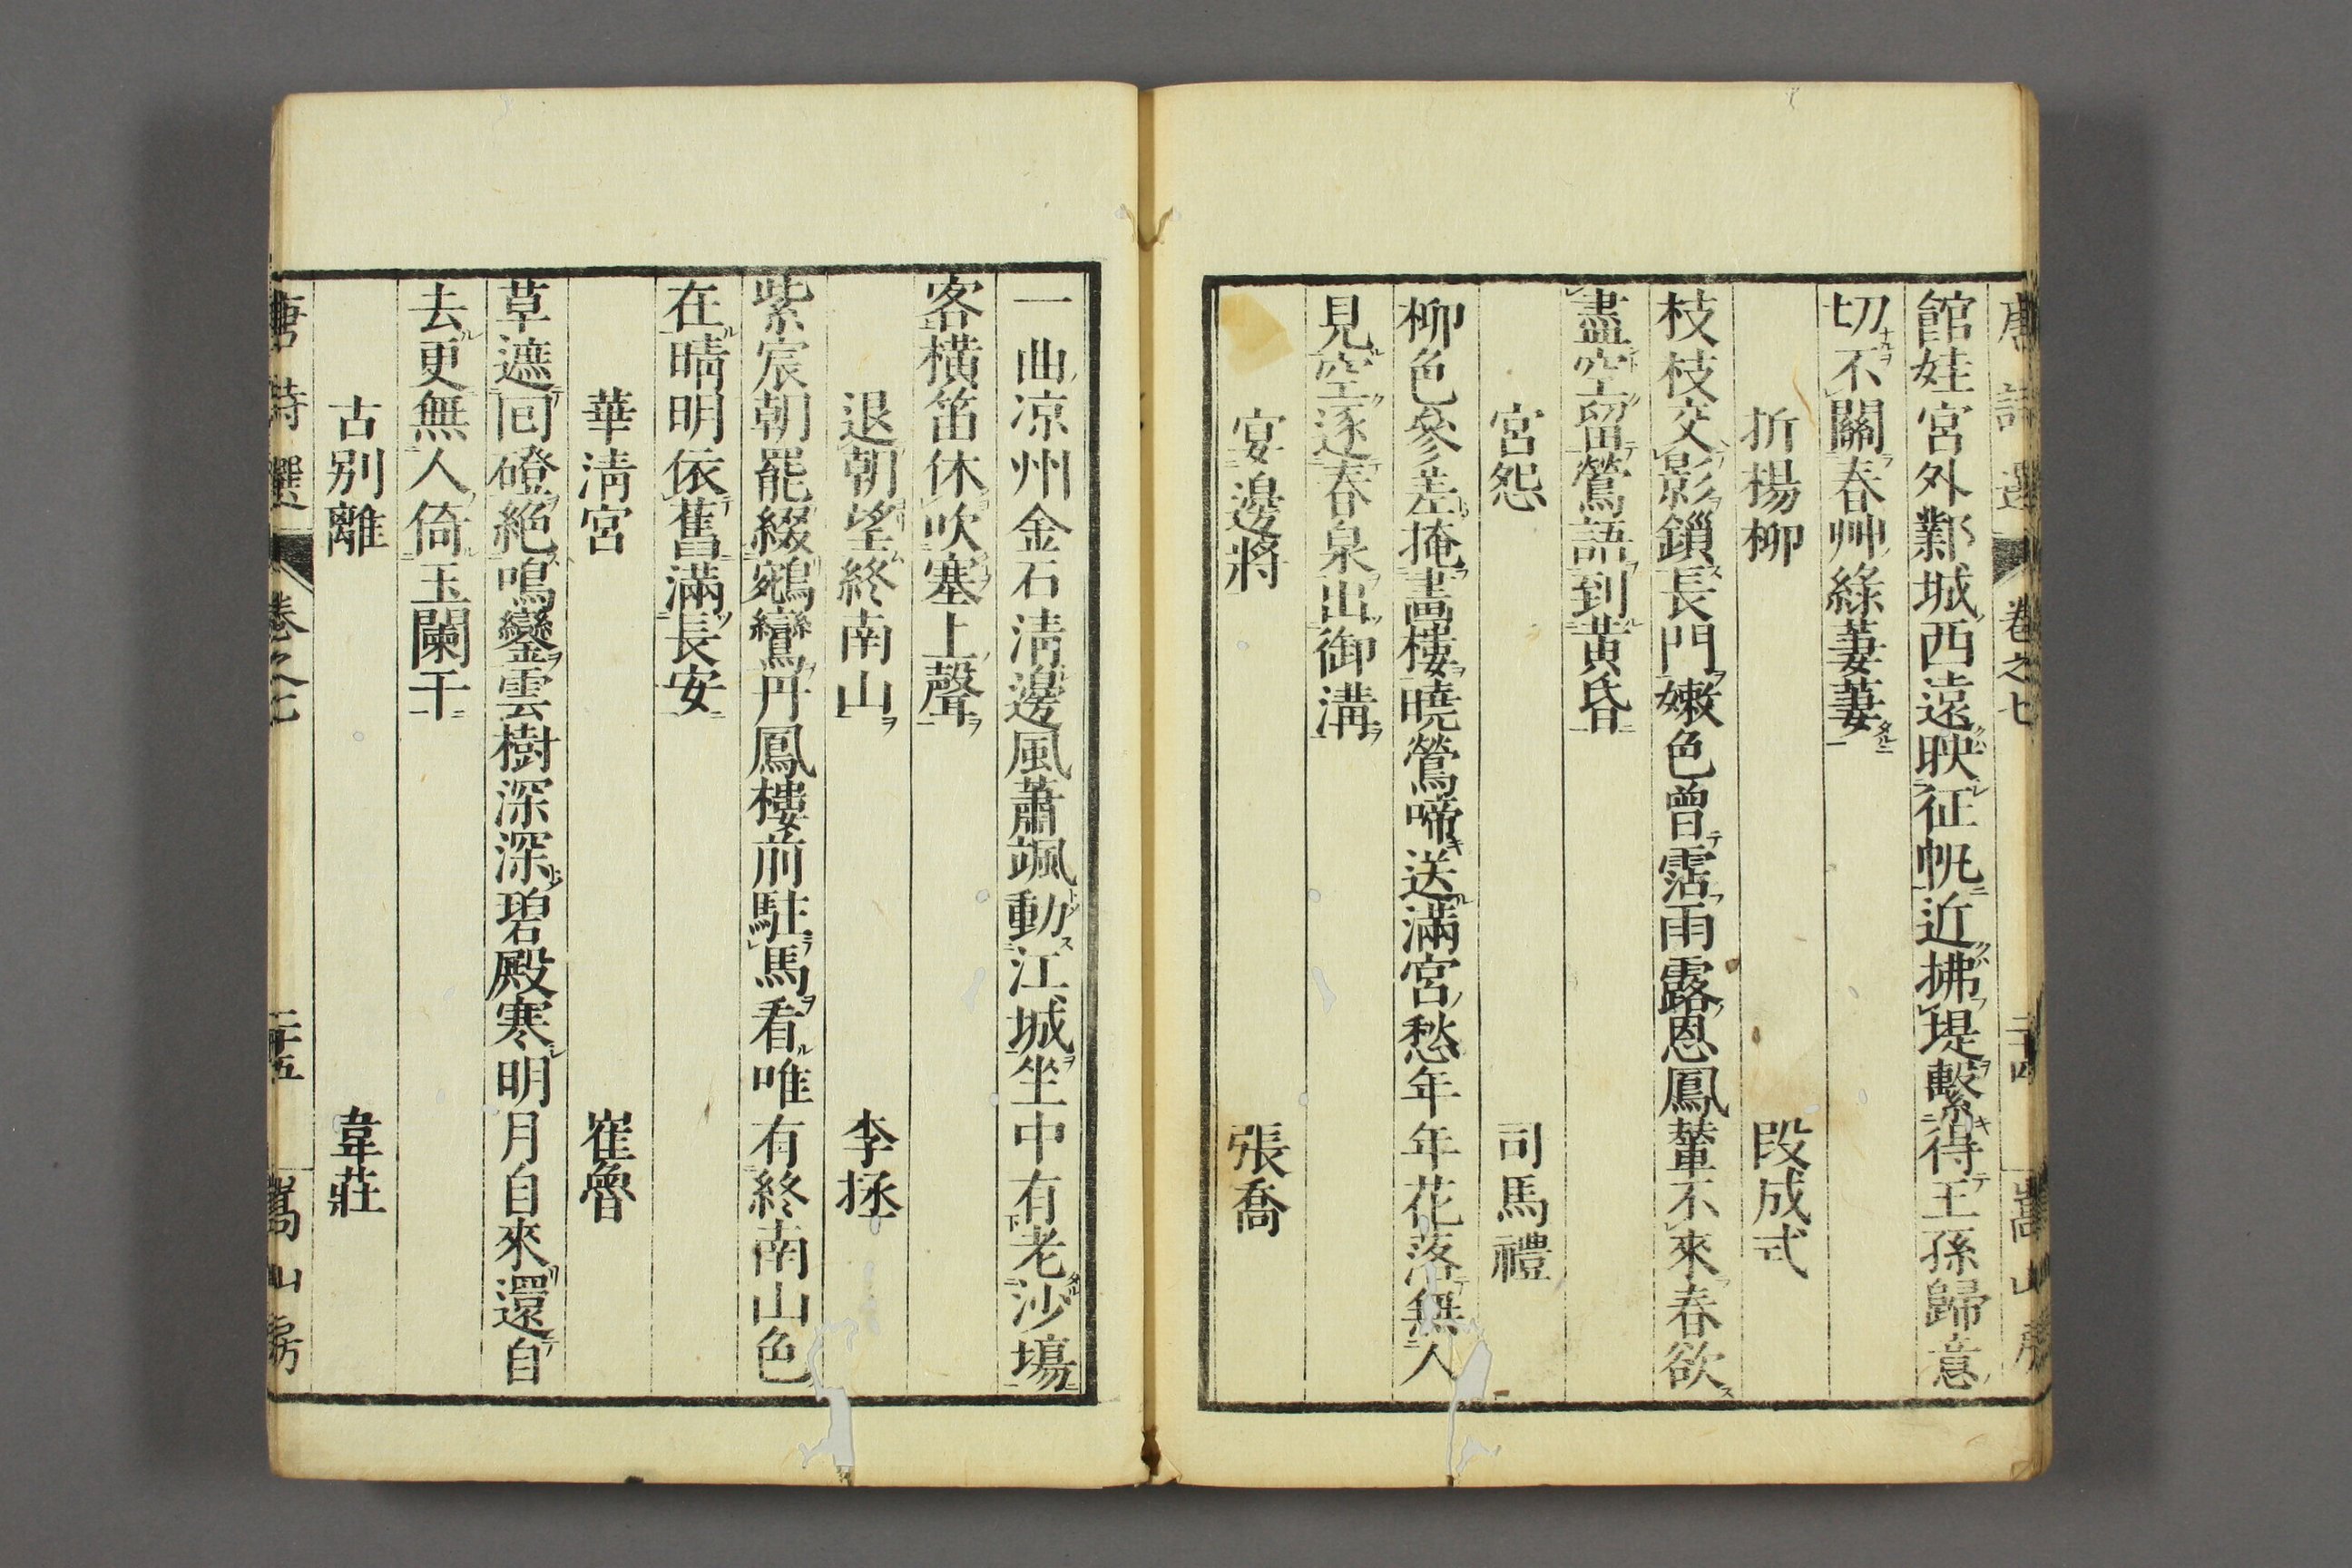 唐詩選 卷之七 二十四 嵩山房
館娃宮外鄴城西遠映征帆近拂堤繫得王孫歸意
切不關春艸綠萋萋
折楊柳 段成式
枝枝交影鎖長門嫩色曾霑雨露恩鳳輦不來春欲
盡空留鶯語到黄昏
宮怨 司馬禮
柳色參差掩畫樓曉鶯啼送滿宮愁年年花落無人
見空逐春泉出御溝
宴邊將 張喬
一曲凉州金石清邊風蕭颯動江城坐中有老沙塲
客横笛休吹塞上聲
退朝望終南山 李拯
紫宸朝罷綴鵷鸞丹鳳樓前駐馬看唯有終南山色
在晴明依舊滿長安
華清宮 崔魯
草遮囘磴絶鳴鑾雲樹深深碧殿寒明月自來還自
去更無人倚玉闌干
古別離 韋莊
唐詩選 卷之七 二十五 嵩山房